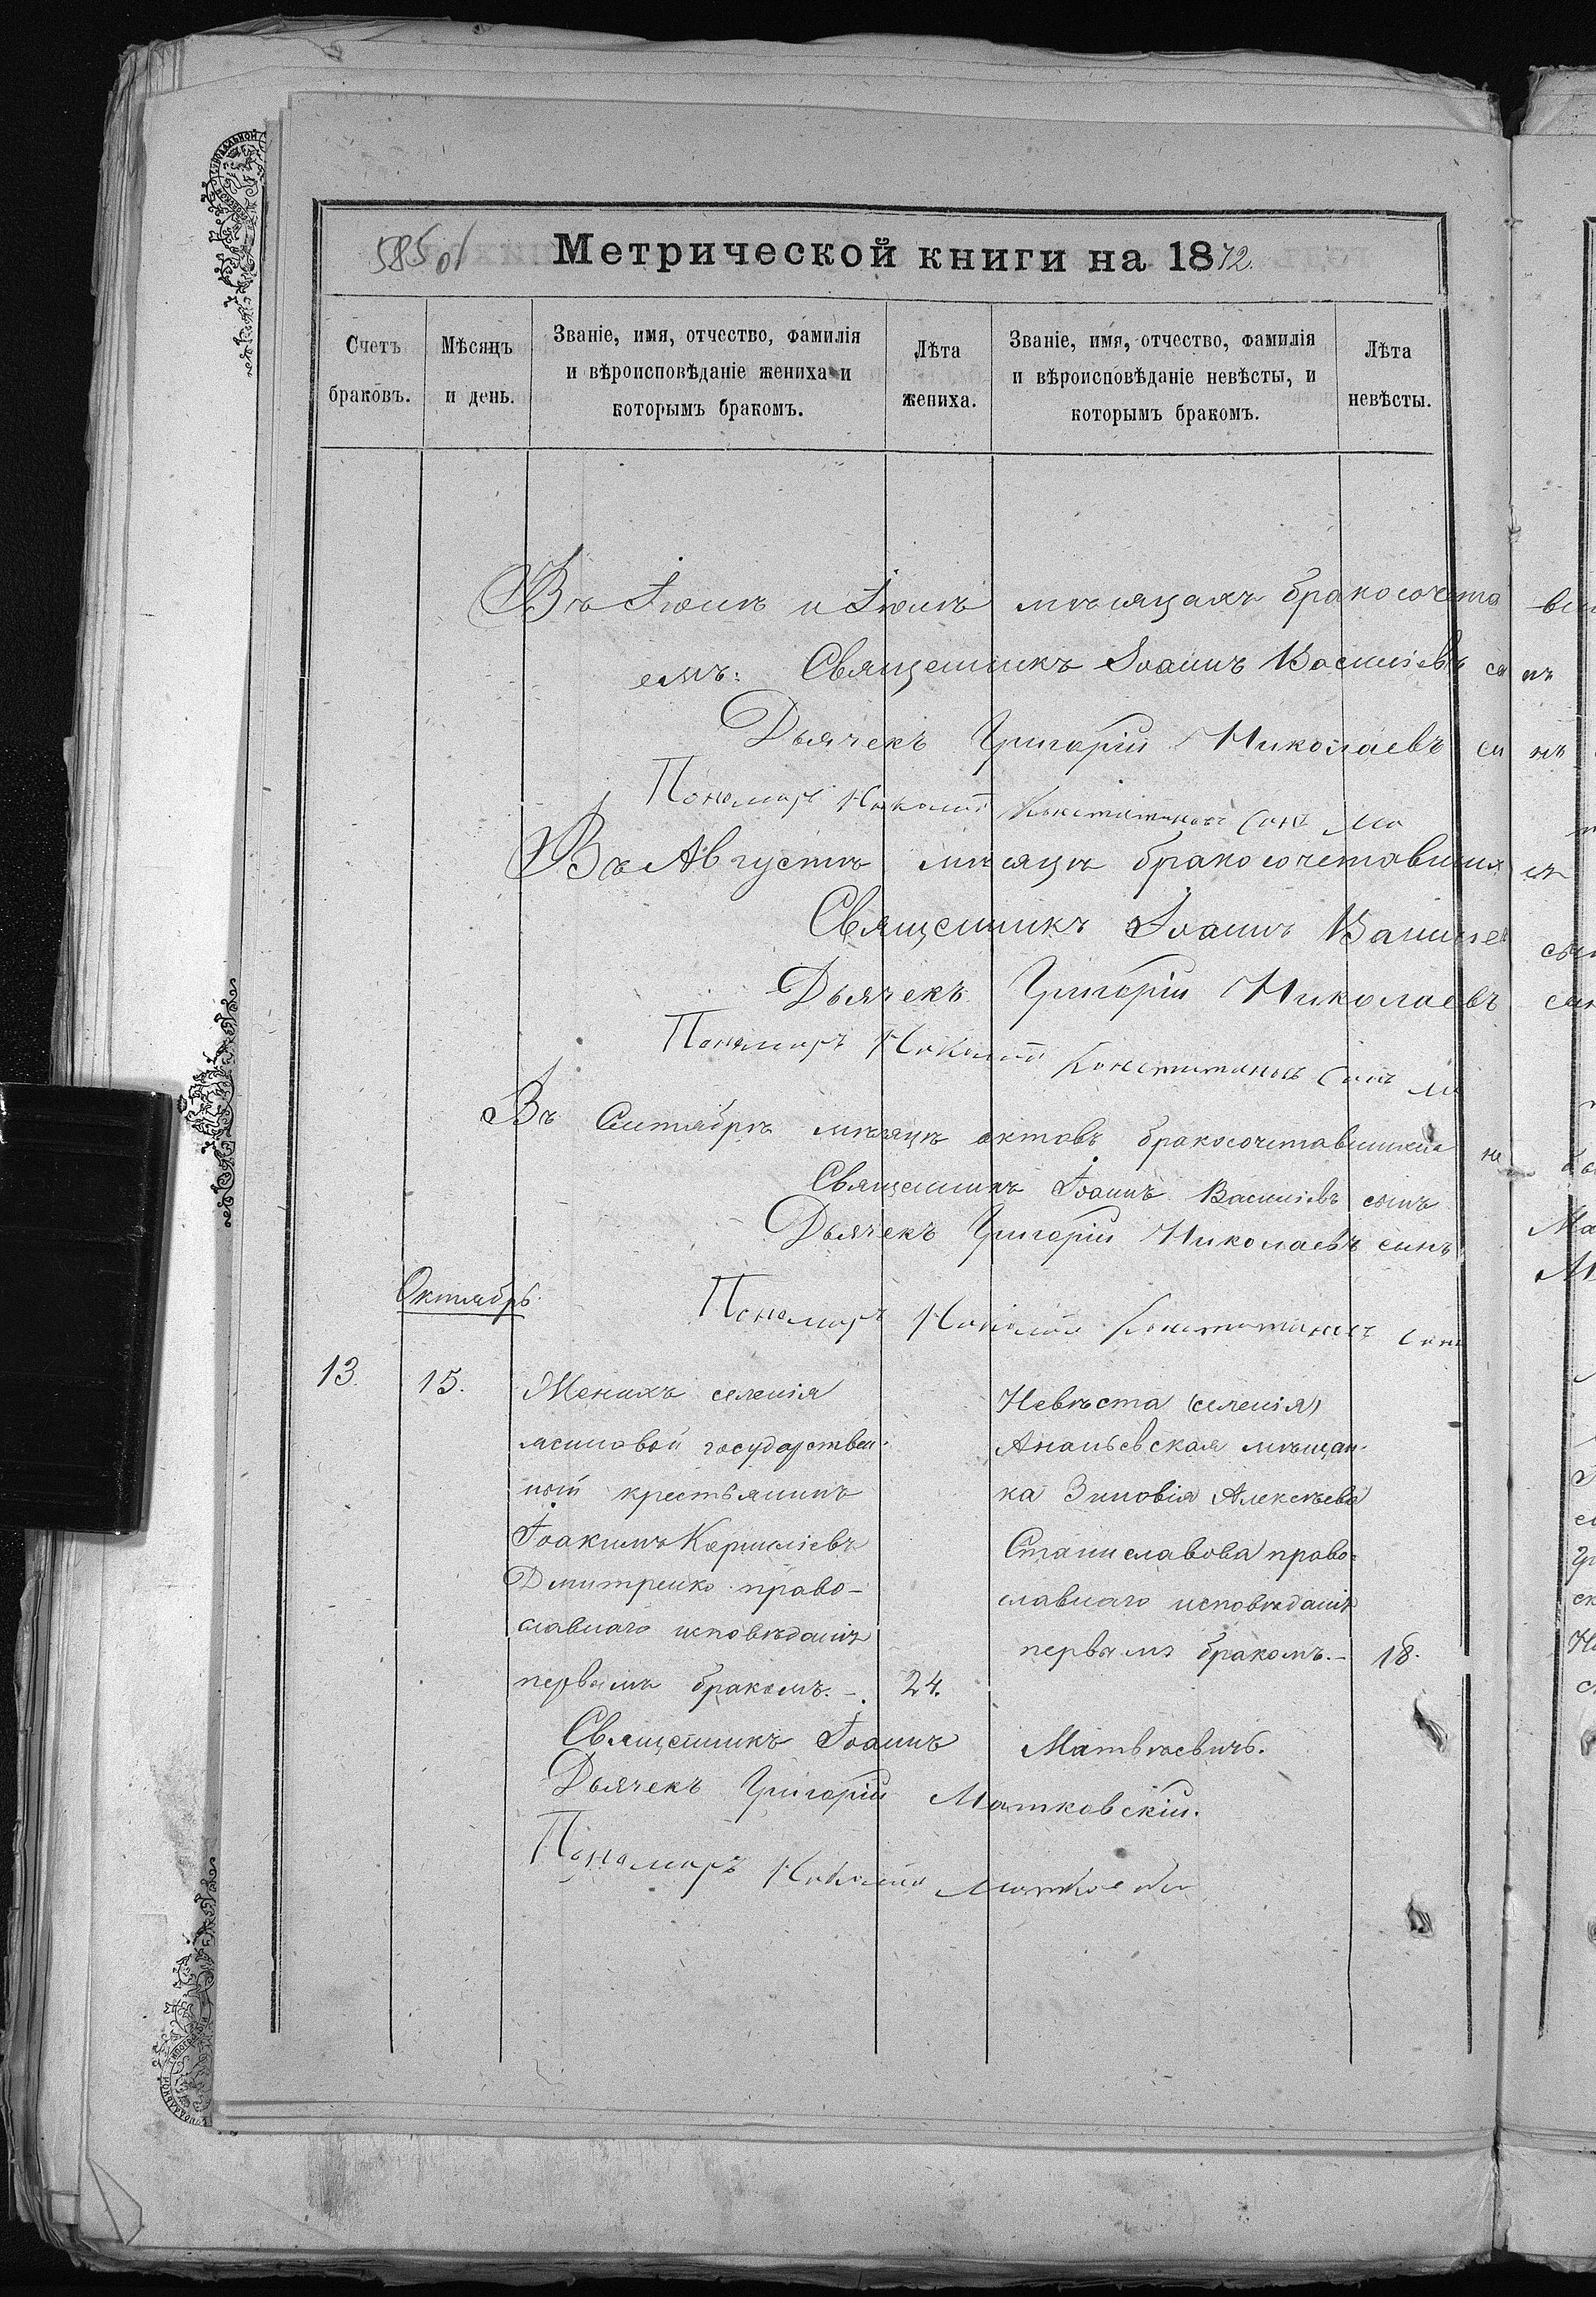 585 об
Метрической книги на 1872.
Счетъ браковъ.
Мѣсяцъ и день.
Званіе, имя, отчество, фамилія и вѣроисповѣданіе жениха и которымъ бракомъ.
Лѣта жениха.
Званіе, имя, отчество, фамилія и вѣроисповѣданіе невѣсты, и которымъ бракомъ.
Лѣта невѣсты.
Въ Іюнѣ и Іюлѣ мѣсяцахъ бракосочета
емъ: Священникъ Іоаннъ Василіевъ
Дьячекъ Григорій Николаевъ
Пономарь Николай Константиновъ Сынъ
Въ Августѣ мѣсяцѣ бракосочетавшихся
Священникъ Іоаннъ Василіе
Дьячекъ Григорій Николаевъ
Пономарь Николай Константиновъ Сынъ
Въ Сентябрѣ мѣсяцѣ актовъ бракосочетавшихся
Священникъ Іоаннъ Василіевъ сынъ
Дьячекъ Григорій Николаевъ сынъ
Пономарь Николай Константиновъ Сынъ
Октябрь.
13. 15.
Женихъ селенія
Ясиновой государствен-
ный крестьянинъ
Іоакимъ Корниліевъ
Дмитренко право-
славнаго исповѣданія
первымъ бракомъ. – 24.
Невѣста (селенія)
Ананьевская мѣщан-
ка Зиновія Алексѣева
Станиславова право-
славнаго исповѣданія
первымъ бракомъ. – 18.
Священникъ Іоаннъ Матвѣевичъ.
Дьячекъ Григорій Матковскій.
Пономарь Николай